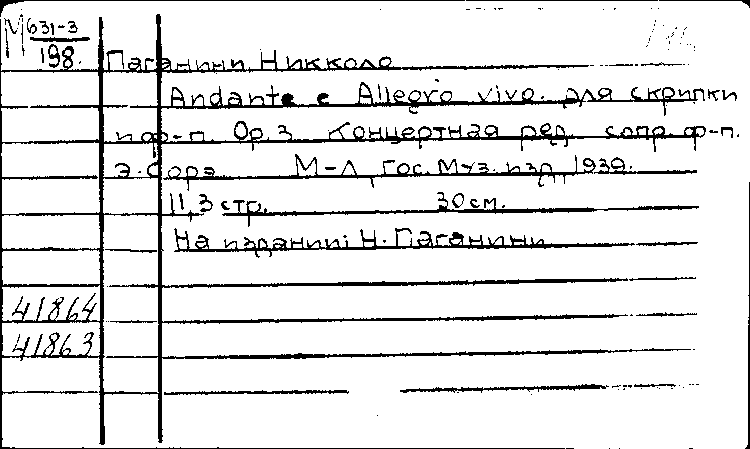 М 631-3
198.
Паганини, Никколо
Andante e Allegro vivo. для скрипки
и ф-п. Op. 3 Концертная ред. сопр. ф-п.
Э. Сорэ М-Л, Гос. Муз. изд., 1939.
11, 3 стр. 30 см.
На издании: Н. Паганини
41864
41863